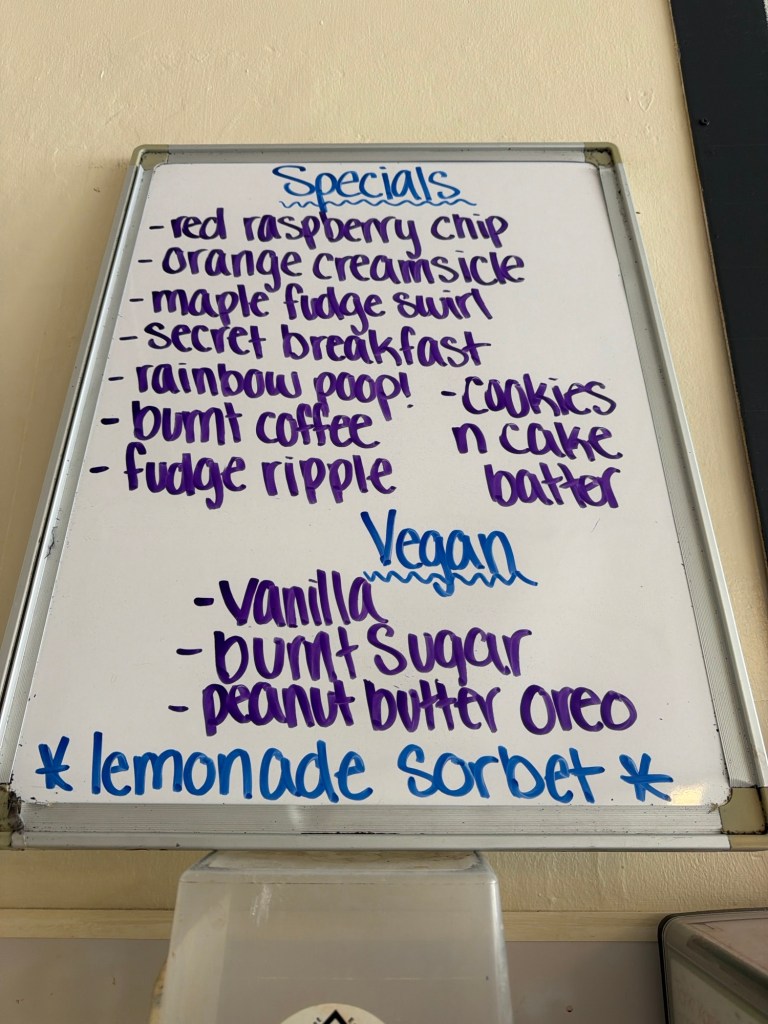 Specials
- red raspberry chip
- orange creamsicle
- maple fudge swirl
- secret breakfast
- rainbow poop!
- burnt coffee
- fudge ripple
- cookies
n cake
batter
Vegan
- vanilla
- burnt sugar
- peanut butter oreo
* lemonade sorbet *